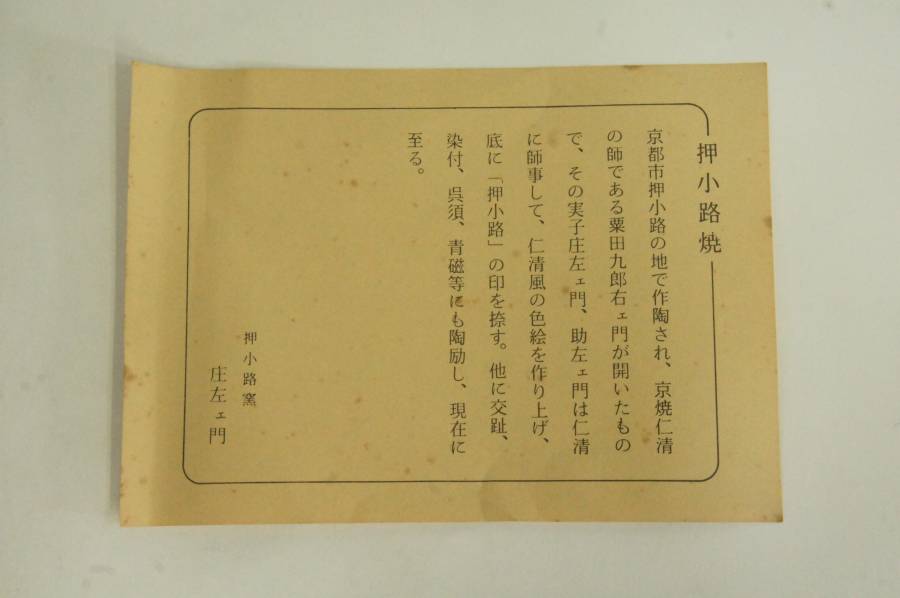 押小路焼
京都市押小路の地で作陶され、京焼仁清
の師である粟田九郎右ェ門が開いたもの
で、その実子庄左ェ門、助左ェ門は仁清
に師事して、仁清風の色絵を作り上げ、
底に「押小路」の印を捺す。他に交趾、
染付、呉須、青磁等にも陶励し、現在に
至る。
押小路窯
庄左ェ門